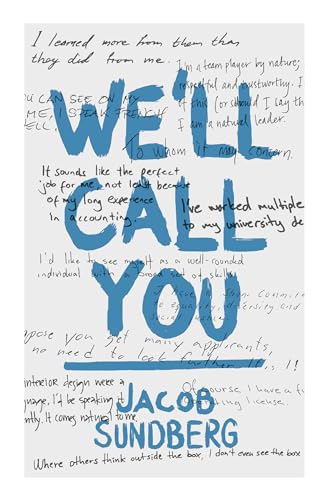 I learned more from them than
they did from me.
I'm a team player by nature;
respectful and trustworthy. I
YOU CAN SEE ON MY
ME, I SPEAK FRENCH
ELL.
if this (or should I say th
I am a natural leader.
WE'LL
To whom it may concern.
It sounds like the perfect
job for me, not least because
of my long experience
in accounting.
CALL
I've worked multiple
to my university de
I'd like to see myself as a well-rounded
individual with a broad set of skills
YOU
I have a
to equality, diversity and
pose you get many applicants,
no need to look further
interior design were a
guage, I'd be speaking it
ntly. It comes natural to me.
Of course, I have a
license.
JACOB
SUNDBERG
Where others think outside the box, I don't even see the box